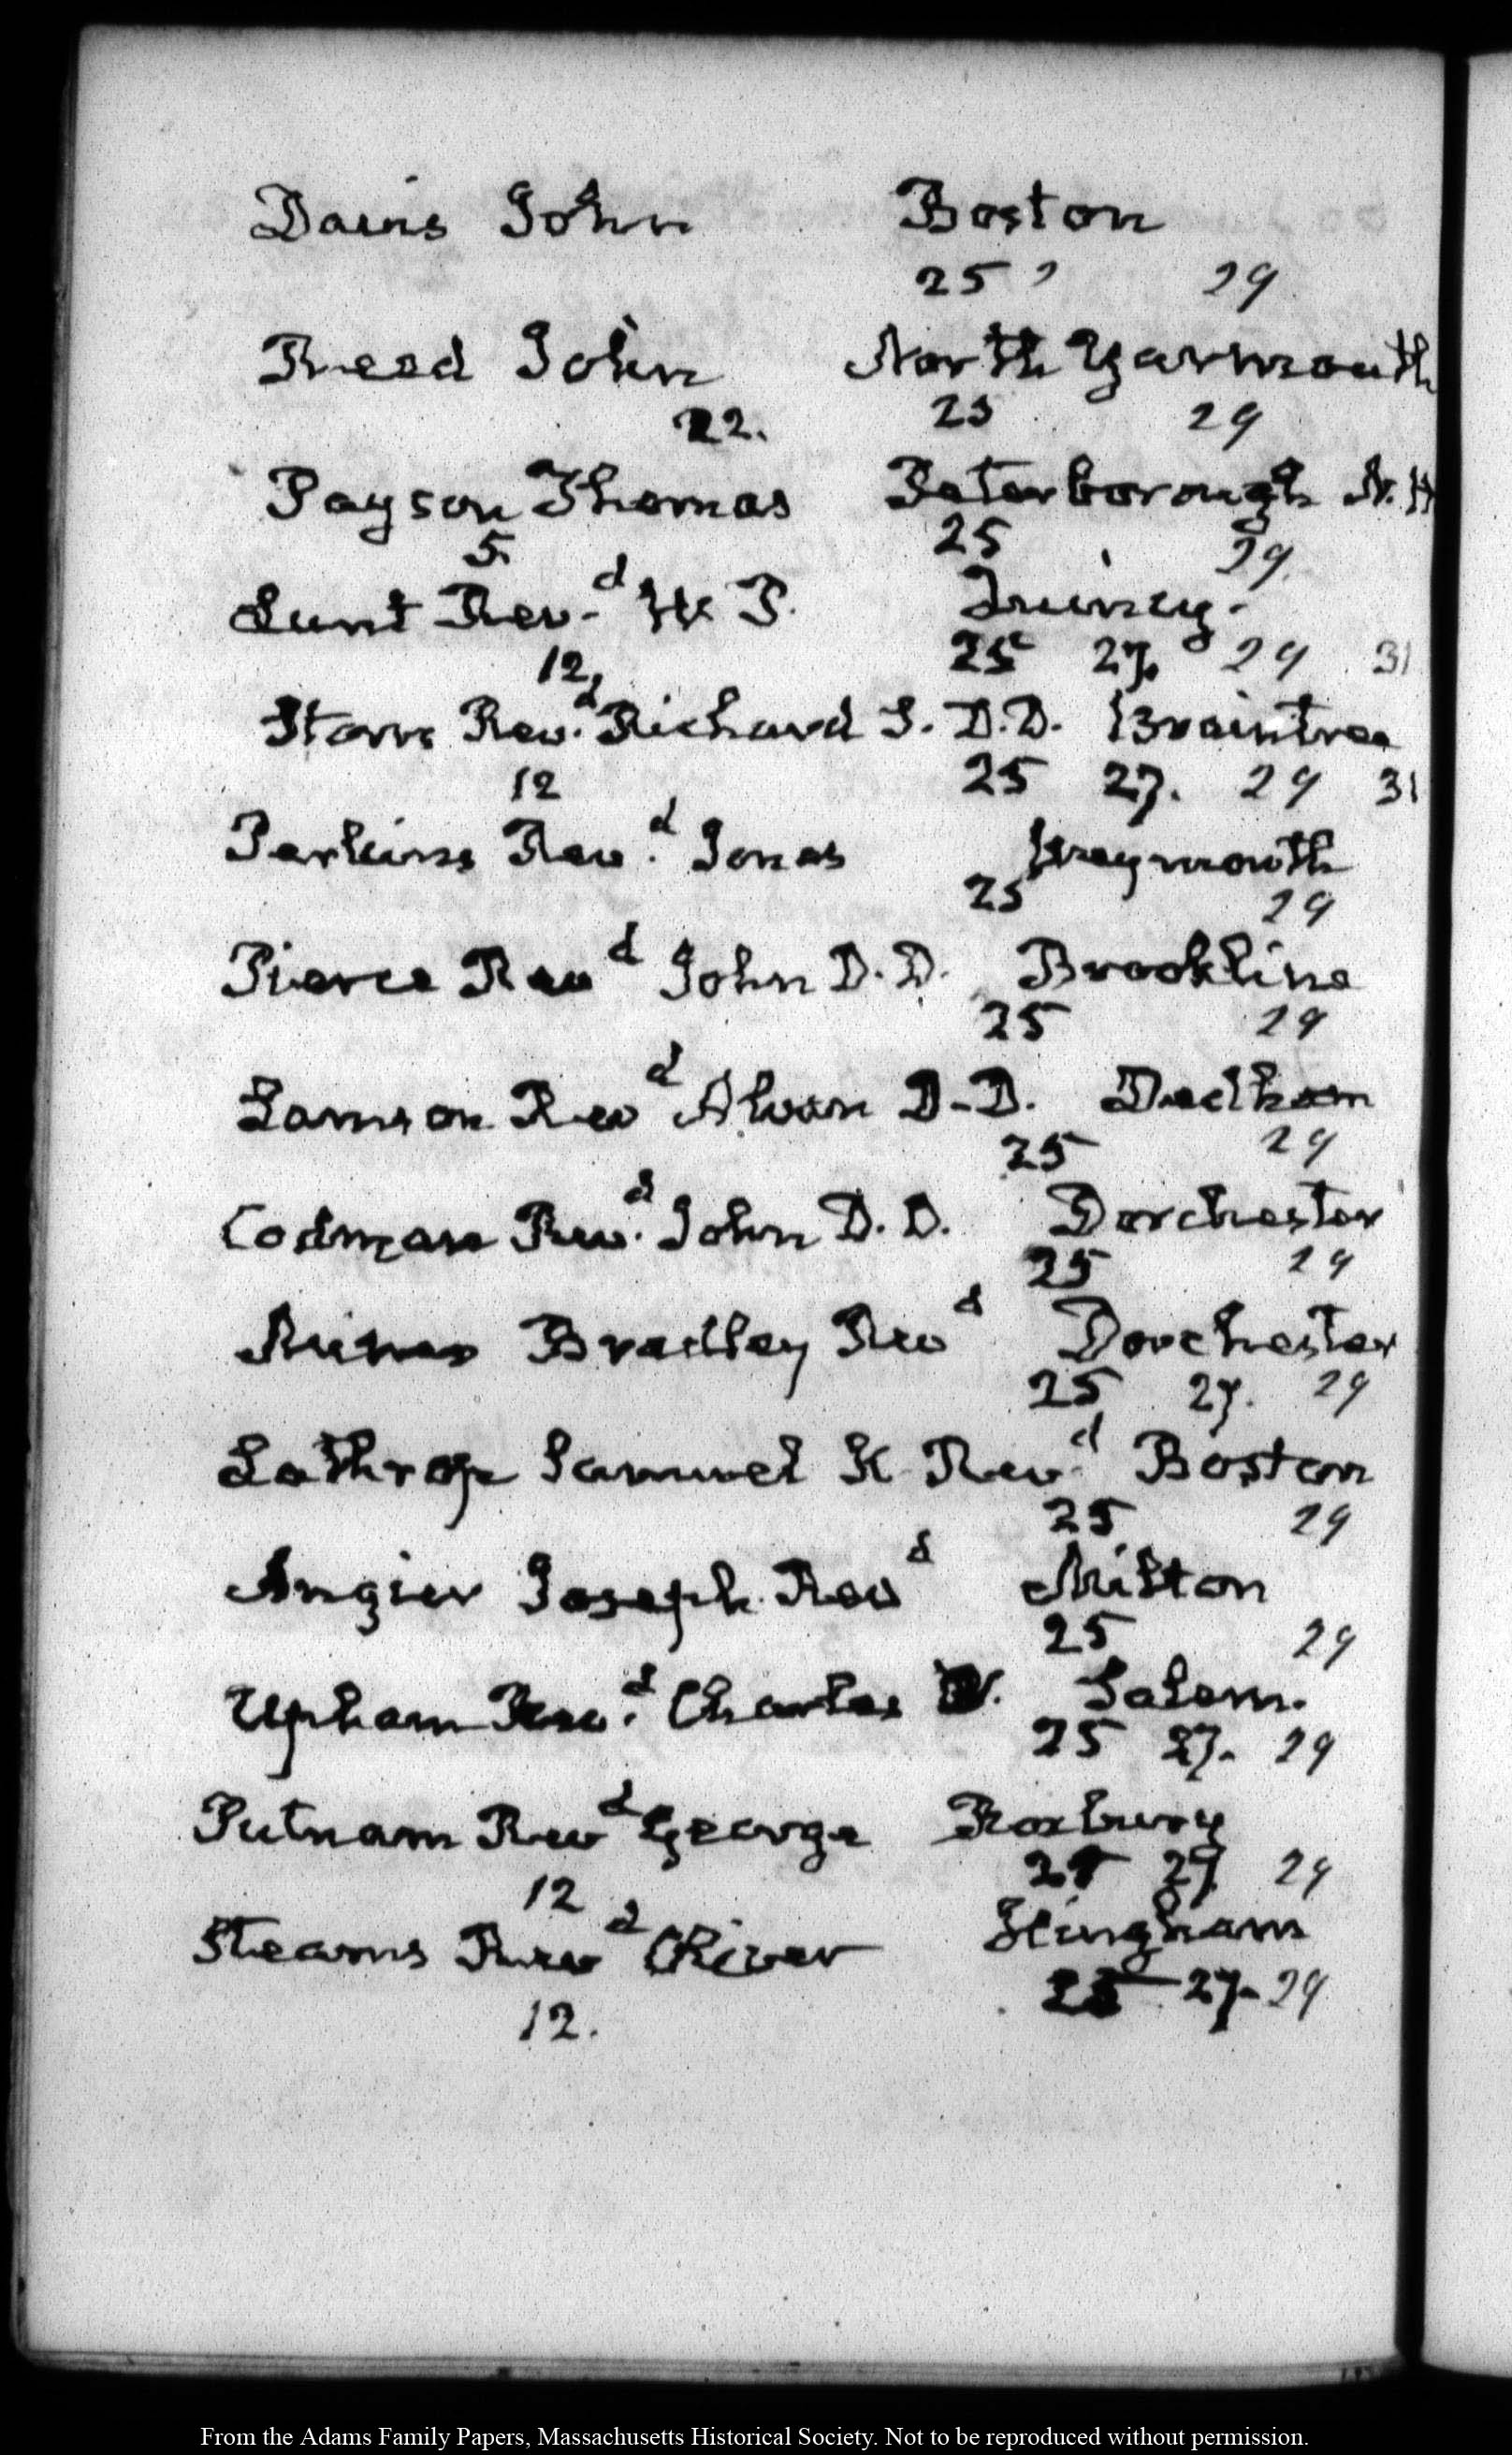 Davis John Boston
25 29
Reed John North Yarmouth
22. 25 29
Payson Thomas Peterborough N.H
5. 25 29.
Lunt Rev.d W P. Quincy.
12. 25 27. 29 31
Storrs Rev.d Richard S. D.D. Braintree
12 25 27. 29 31
Perkins Rev.d Jonas Weymouth
25 29
Pierce Revd John D.D. Brookline
25 29
Lamson Revd Alvan D.D. Dedham
25 29
Codman Rev.d John D.D. Dorchester
25 29
Bradley Revd Dorchester
25 27. 29
Lothrop Samuel K Revd Boston
25 29
Angier Joseph Revd Milton
25 29
Upham Rev.d Charles W. Salem.
25 27. 29
Putnam Revd George Roxbury
12 25 27 29
Stearns Revd Oliver Hingham
12. 25 27. 29
From the Adams Family Papers, Massachusetts Historical Society. Not to be reproduced without permission.